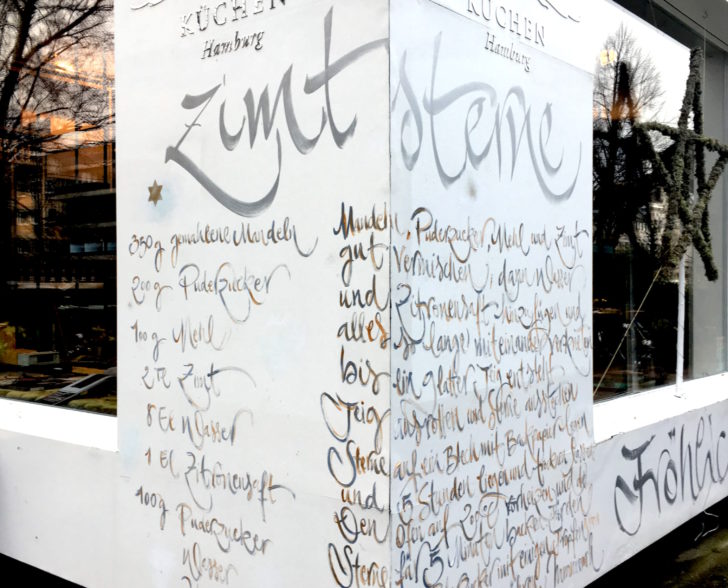 KÜCHEN
Hamburg
KÜCHEN
Hamburg
Zimtsterne
350g gemahlene Mandeln
200g Puderzucker
100g Mehl
2 TL Zimt
8 EL Wasser
1 EL Zitronensaft
100g Puderzucker
Wasser
Mandeln, Puderzucker, Mehl und Zimt
gut vermischen, dann Wasser
und Zitronensaft hinzufügen und
alles so lange miteinander
bis ein glatter Teig entsteht
Teig ausrollen und Sterne ausstechen
Sterne auf ein Blech mit Backpapier legen
und 5 Stunden liegen und trocknen lassen
Den Ofen auf 200° vorheizen und die
Sterne für 5 Minuten backen
mit einigen Tropfen
Fröhlic